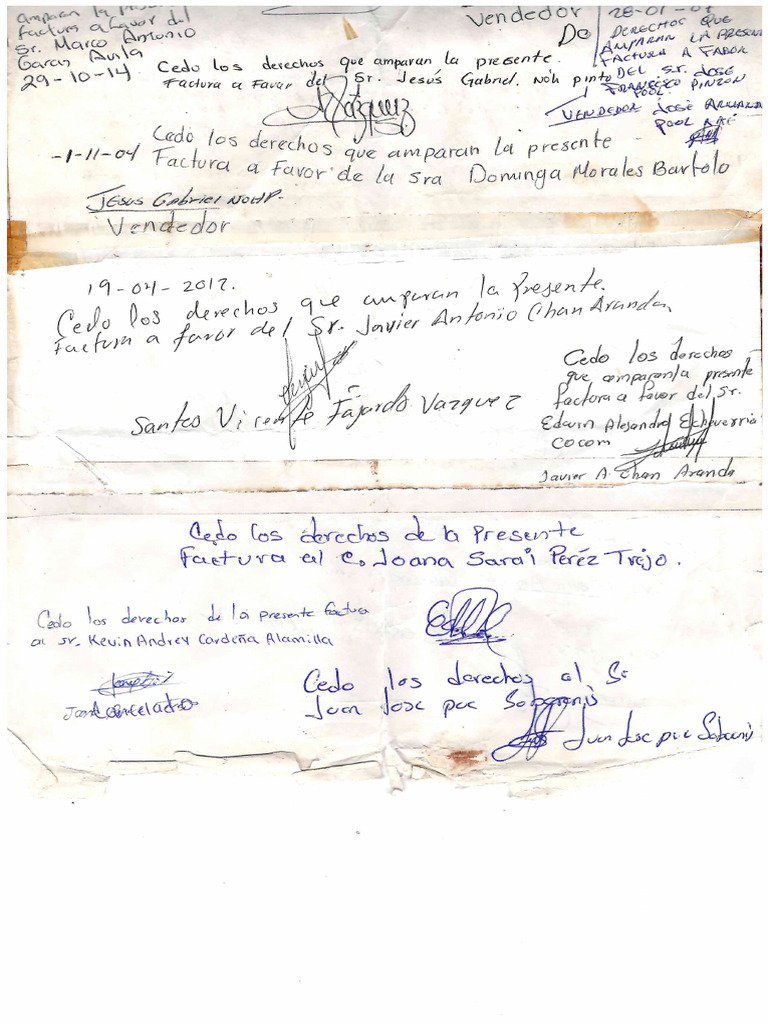 amparan la
factura a favor del
Sr. Marco Antonio
Avila
29-10-14
Vendedor
28-01-07
DERECHOS QUE
AMPARAN LA PRESEN
FACTURA A FABOR
DEL S.r. JOSÉ
FRANCISCO PINZON
POOL
VENDEDOR JOSE
POOL
Cedo los derechos que amparan la presente.
Factura a Favar del Sr. Jesús Gabriel. Noh pinto
Cedo los derechos que amparan la presente
-1-11-04 Factura a Favor de la sra Dominga Morales Bartolo
JESUS Gabriel NOH P.
Vendedor
19-04-2012.
Cedo los derechos que amparan la Presente.
factura a favor del Sr. Javier Antonio Chan Aranda,
Santos Vicente Fajardo Vazquez
Cedo los derechos
que amparan la presente
factura a favor del Sr.
Edwin Alejandro Echeverria
COCOM
Javier A. Chan Aranda
Cedo los derechos de la Presente
Factura al C. Joana Sarai Peréz Trejo.
Cedo los derechos de la presente factura
al sr. Kevin Andrey Cardeña Alamilla
Cedo los derechos al Sr
Juan Jose puc
Juan Jose puc